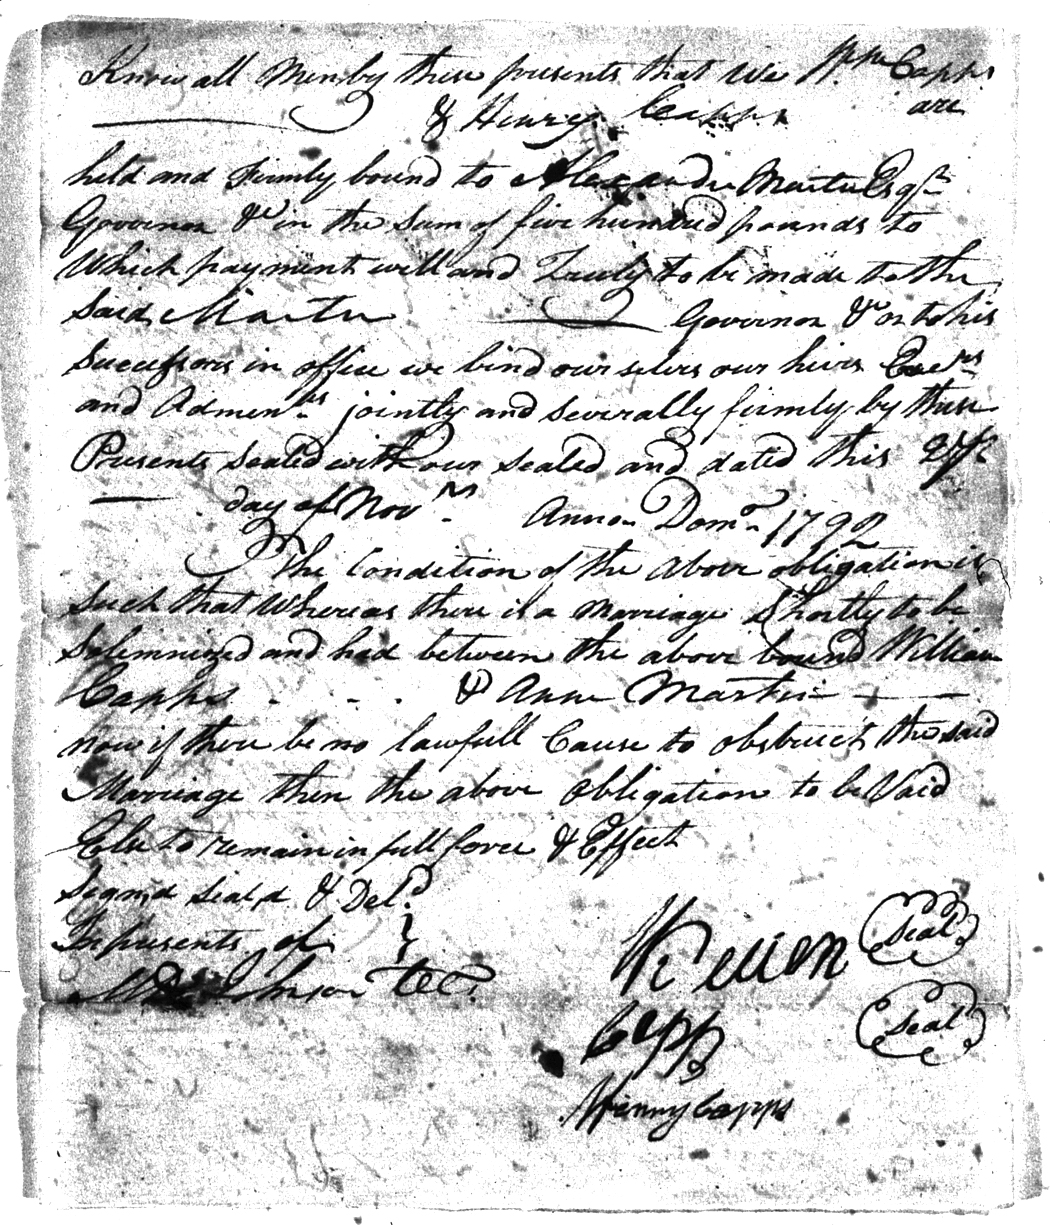 Know all Men by these presents that We Wm Capps
& Henry Capps are
held and firmly bound to Alexander Martin Esqr
Governor &c in the Sum of five hundred pounds to
Which payment well and Truly to be made to the
Said Martin Governor &c or to his
Successors in office we bind our selves our heirs Exers
and Admenrs jointly and Severally firmly by these
Presents Sealed with our Sealed and dated this
day of Novr Anno Domo 1792
The Condition of the Above obligation is
Such that Whereas there is a Marriage Shortly to be
Solemnized and had between the above bound William
Capps & Anne Martin
now if there be no lawfull Cause to obstruct the said
Marriage then the above obligation to be Void
Else to remain in full force & Effect
Segn,d Seal,d & Del.d
In presents of
Johnson
Seal
Capps
Seal
Hennry Capps